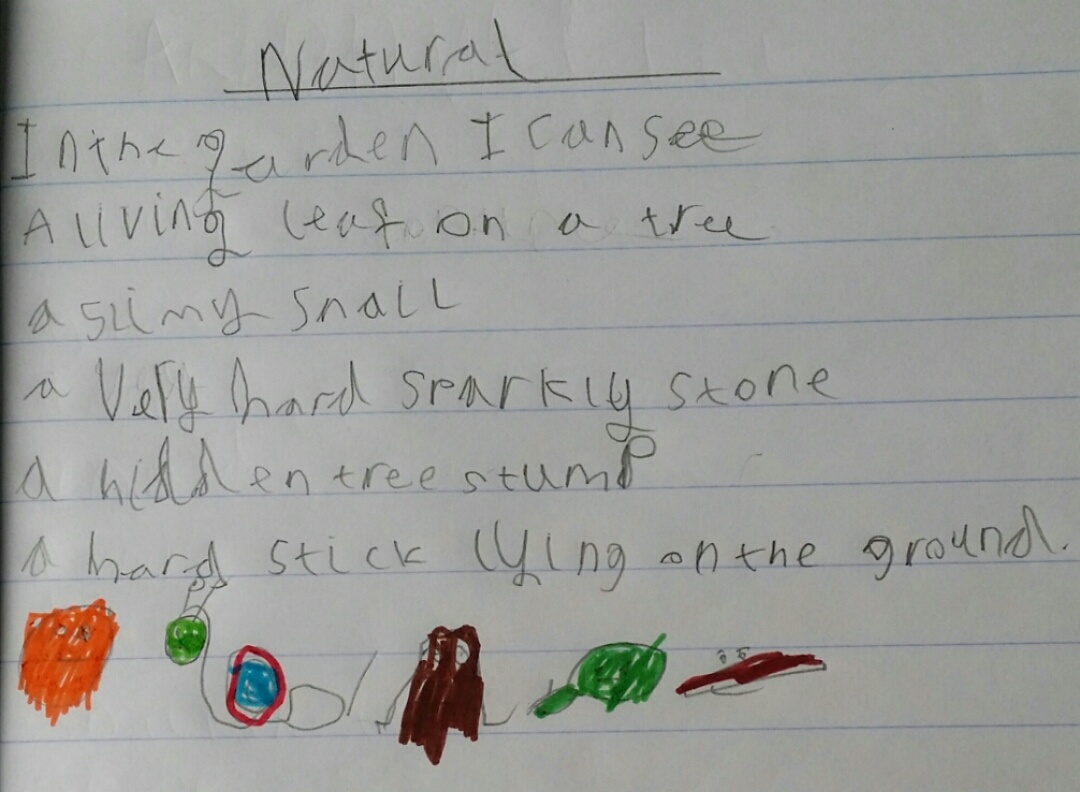 Natural
In the garden I can see
A living leaf on a tree
a slimy snail
a Very hard sparkly stone
a hidden tree stump
a hard stick lying on the ground.